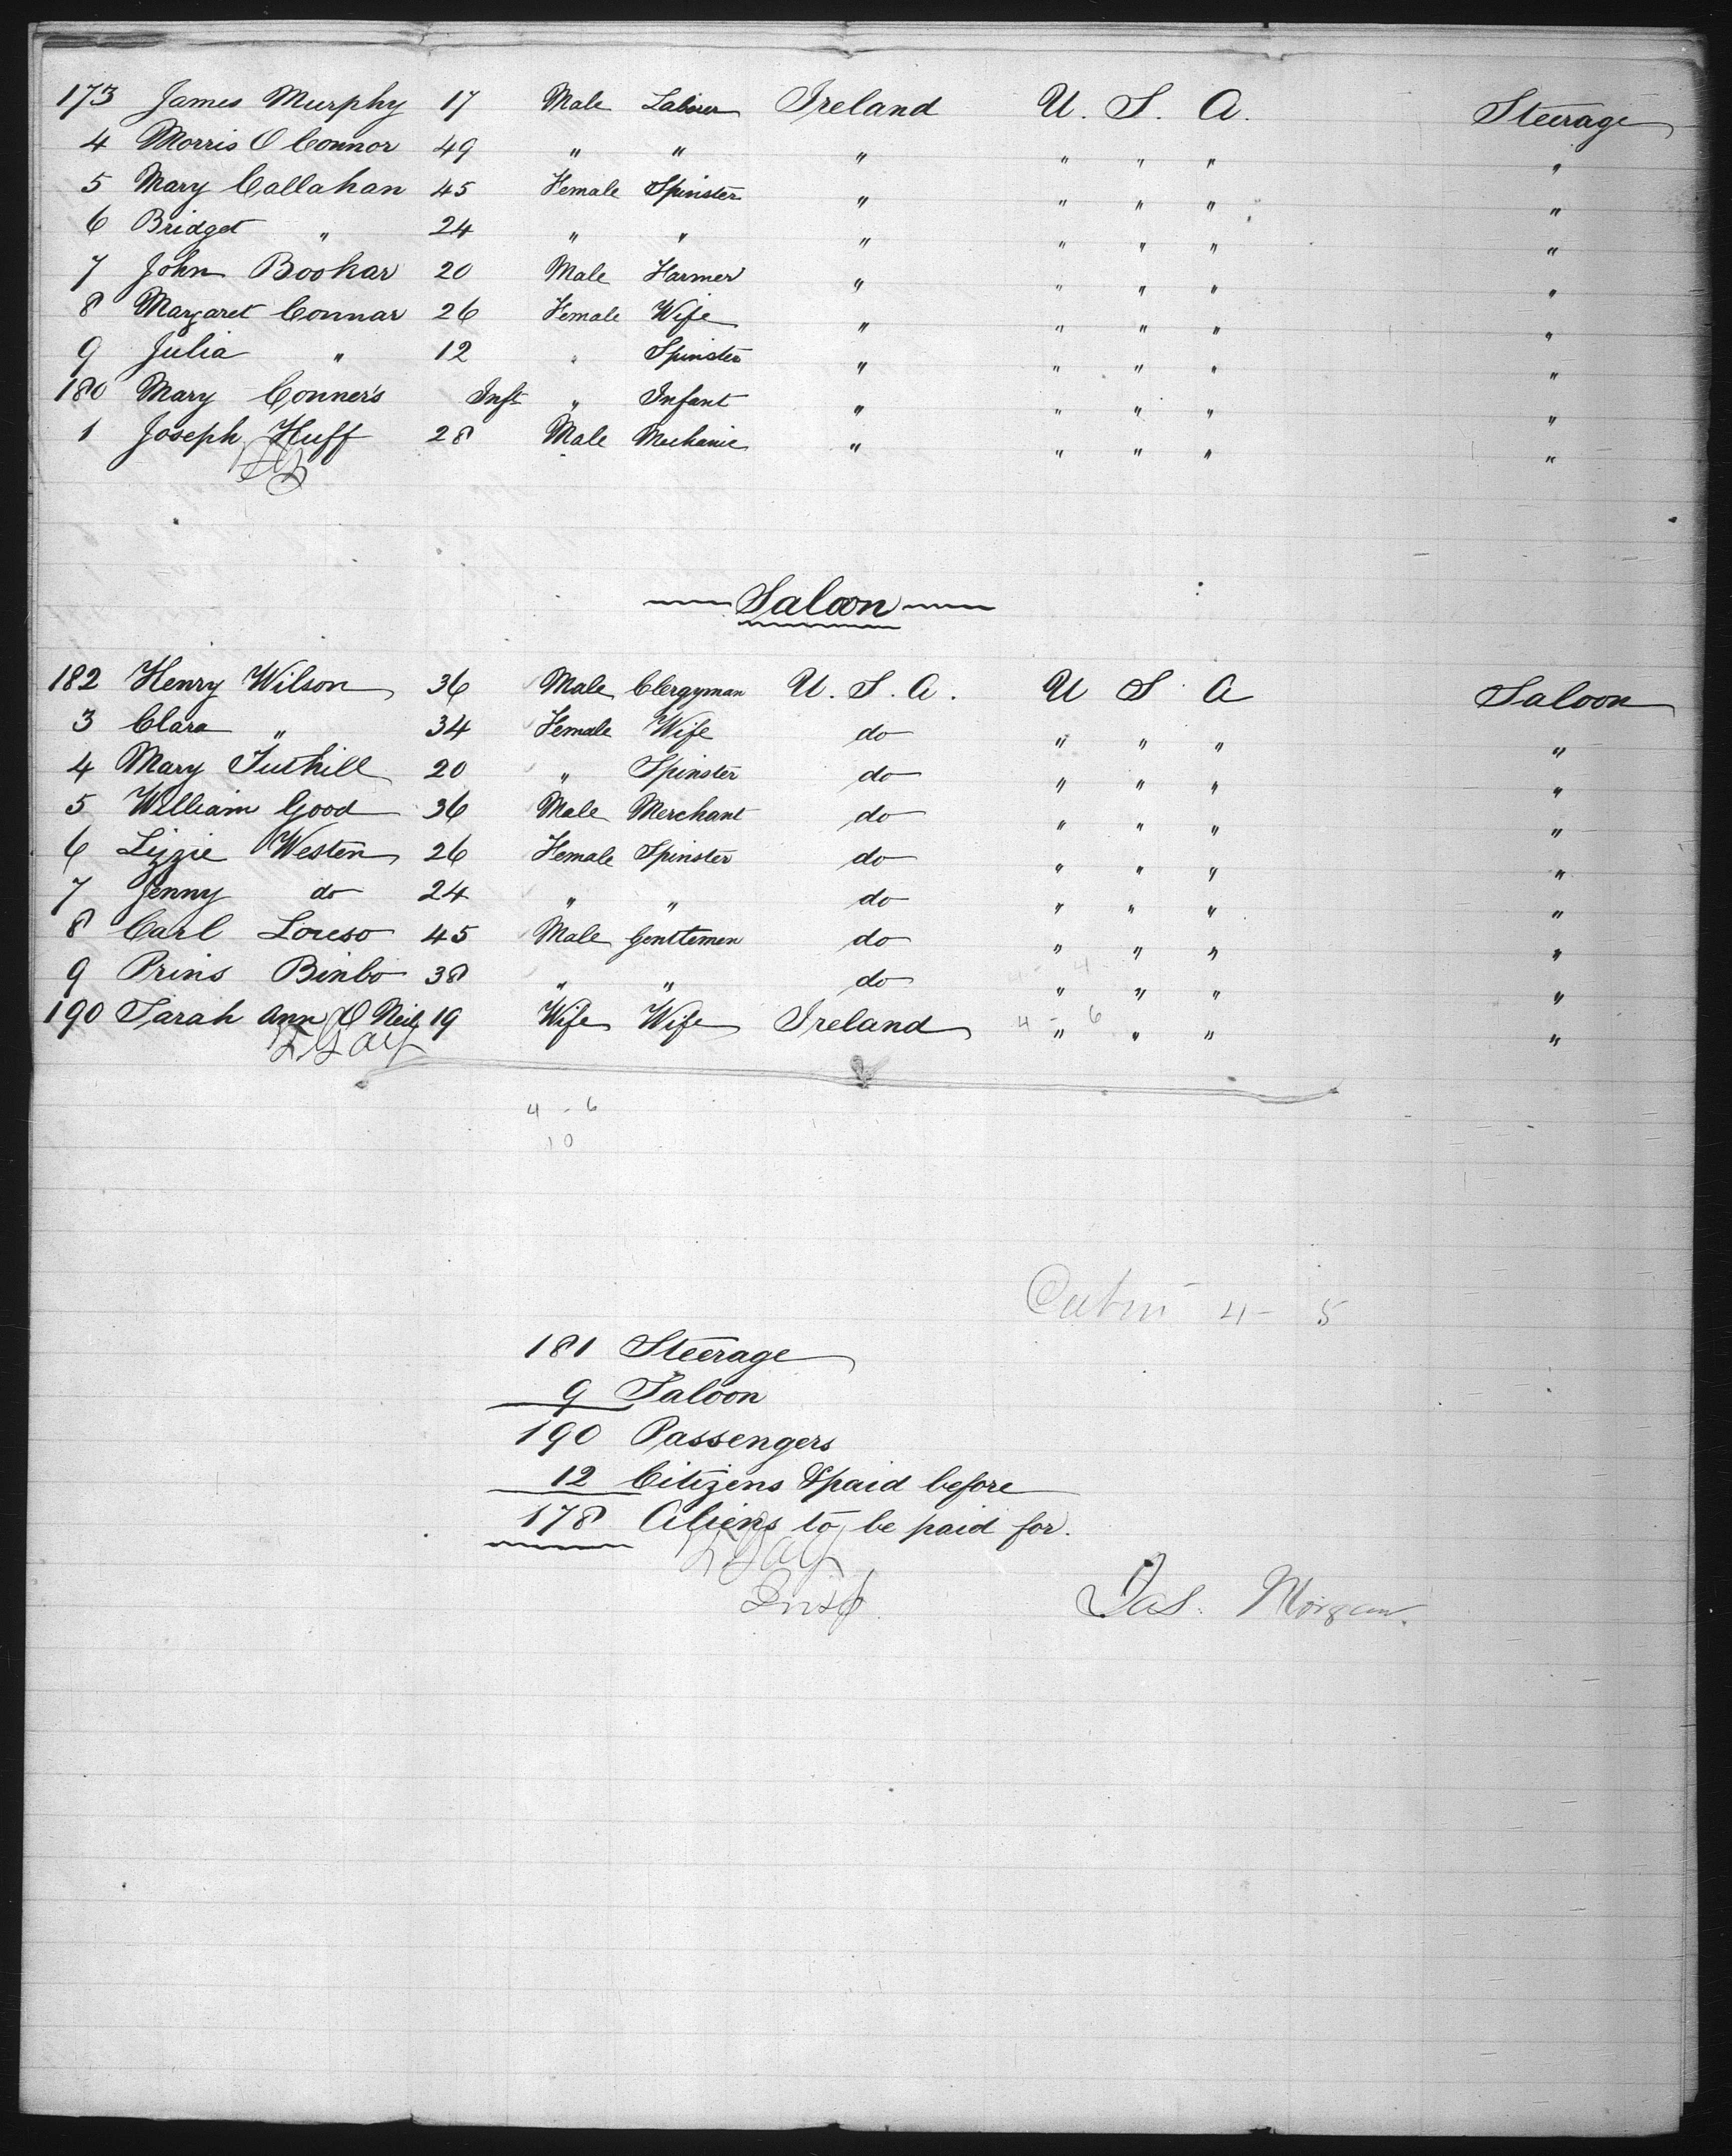 173 James Murphy 17 Male Laborer Ireland U. S. A. Steerage
4 Morris O Connor 49 " " " " " " "
5 Mary Callahan 45 Female Spinster " " " " "
6 Bridget " 24 " " " " " " "
7 John Boohar 20 Male Farmer " " " " "
8 Margaret Connar 26 Female Wife " " " " "
9 Julia " 12 " Spinster " " " " "
180 Mary Conner's Inft " Infant " " " " "
1 Joseph Huff 28 Male Mechanic " " " " "
Saloon
182 Henry Wilson 36 Male Clergyman U. S. A. U S A Saloon
3 Clara " 34 Female Wife do " " " "
4 Mary Tuthill 20 " Spinster do " " " "
5 William Good 36 Male Merchant do " " " "
6 Lizzie Westen 26 Female Spinster do " " " "
7 Jenny do 24 " " do " " " "
8 Carl Loreso 45 Male Gentlemen do " " " "
9 Prins Binbo 38 " " do " " " "
190 Sarah Ann O Neil 19 Wife Wife Ireland 4 - 6 " " " "
4 - 6
10
Cabin 4 - 5
181 Steerage
9 Saloon
190 Passengers
12 Citizens & paid before
178 Aliens to be paid for.
Insp.
Jas. Morgan.